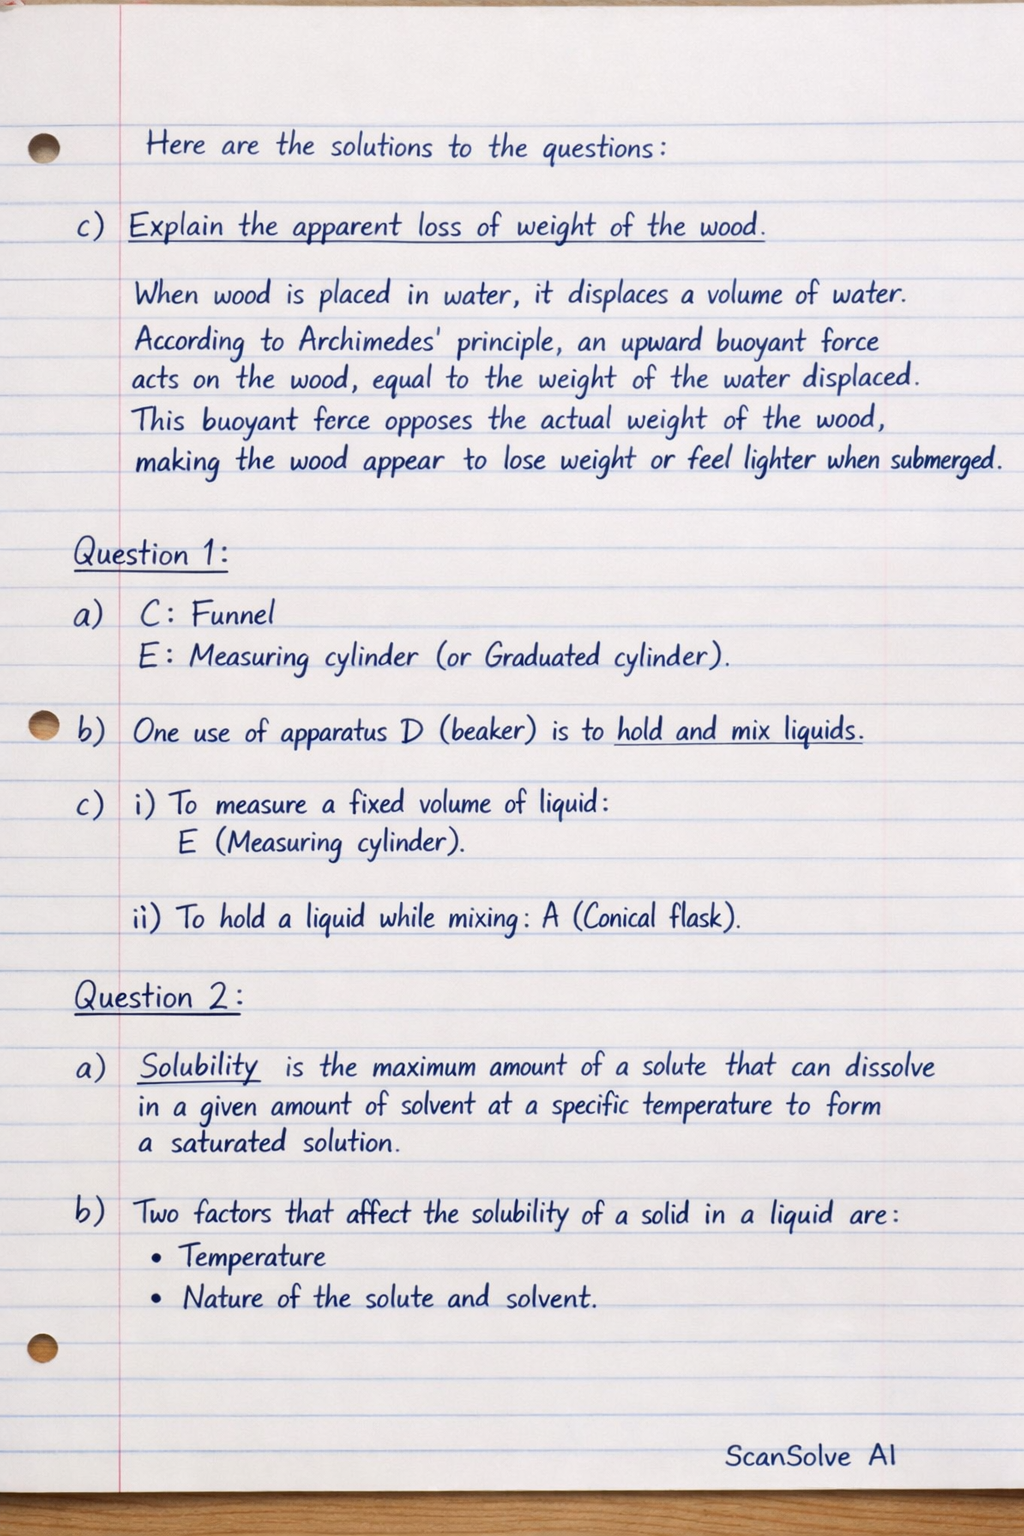 Here are the solutions to the questions:
c) Explain the apparent loss of weight of the wood.
When wood is placed in water, it displaces a volume of water.
According to Archimedes' principle, an upward buoyant force
acts on the wood, equal to the weight of the water displaced.
This buoyant force opposes the actual weight of the wood,
making the wood appear to lose weight or feel lighter when submerged.
Question 1:
a) C: Funnel
E: Measuring cylinder (or Graduated cylinder).
b) One use of apparatus D (beaker) is to hold and mix liquids.
c) i) To measure a fixed volume of liquid:
E (Measuring cylinder).
ii) To hold a liquid while mixing: A (Conical flask).
Question 2:
a) Solubility is the maximum amount of a solute that can dissolve
in a given amount of solvent at a specific temperature to form
a saturated solution.
b) Two factors that affect the solubility of a solid in a liquid are:
• Temperature
• Nature of the solute and solvent.
ScanSolve AI